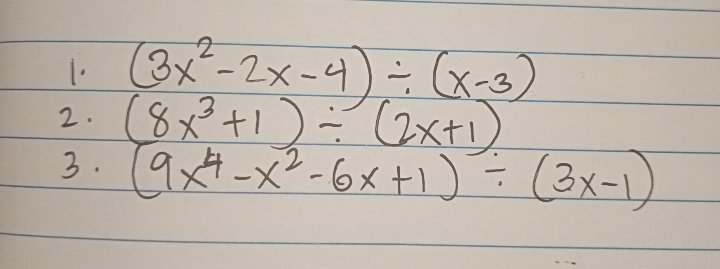 1. (3x²-2x-4) ÷ (x-3)
2. (8x³+1) ÷ (2x+1)
3. (9x⁴-x²-6x+1) ÷ (3x-1)